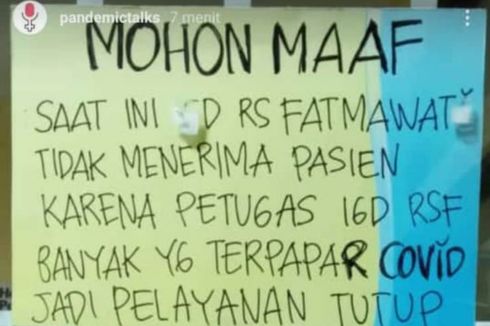 pandemictalks 7 menit
MOHON MAAF
SAAT INI IGD RS FATMAWATI
TIDAK MENERIMA PASIEN
KARENA PETUGAS IGD RSF
BANYAK YG TERPAPAR COVID
JADI PELAYANAN TUTUP